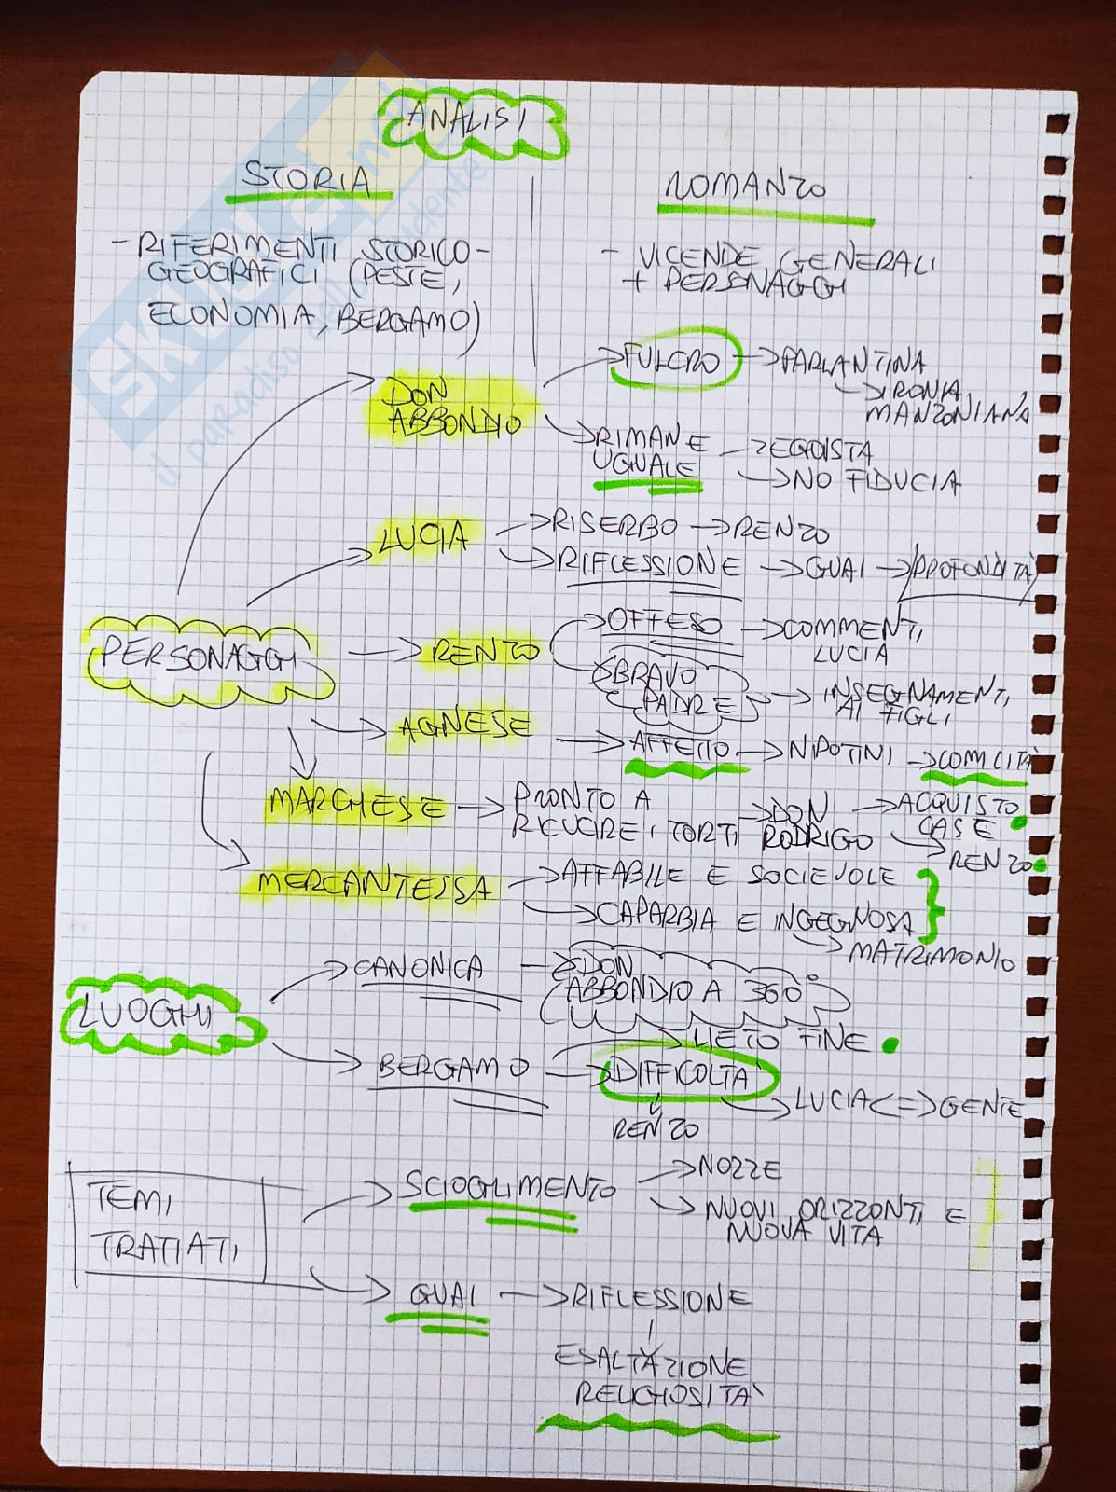 ANALISI
STORIA
ROMANZO
- RIFERIMENTI STORICO-
GEOGRAFICI (PESTE,
ECONOMIA, BERGAMO)
- VICENDE GENERALI
+ PERSONAGGI
PERSONAGGI
DON
ABBONDIO
FULCRO → PARLANTINA
→ IRONIA
MANZONIANA
→ RIMANE
UGUALE
→ EGOISTA
→ NO FIDUCIA
LUCIA
→ RISERBO → RENZO
→ RIFLESSIONE → GUAI → PROFONDITÀ
RENZO
→ OFFESO → COMMENTI
LUCIA
BRAVO
PADRE
→ INSEGNAMENTI
AI FIGLI
AGNESE → AFFETTO → NIPOTINI → COMICITÀ
MARCHESE → PRONTO A
RICUCIRE I TORTI
→ DON
RODRIGO
→ ACQUISTO
CASE
→ RENZO
MERCANTESSA → AFFABILE E SOCIEVOLE
→ CAPARBIA E INGEGNOSA
→ MATRIMONIO
LUOGHI
→ CANONICA → DON
ABBONDIO A 360°
→ BERGAMO
→ LIETO FINE
→ DIFFICOLTÀ
RENZO
→ LUCIA <=> GENTE
TEMI
TRATTATI
→ SCIOGLIMENTO
→ NOZZE
→ NUOVI ORIZZONTI E
NUOVA VITA
→ GUAI → RIFLESSIONE
ESALTAZIONE
RELIGIOSITÀ